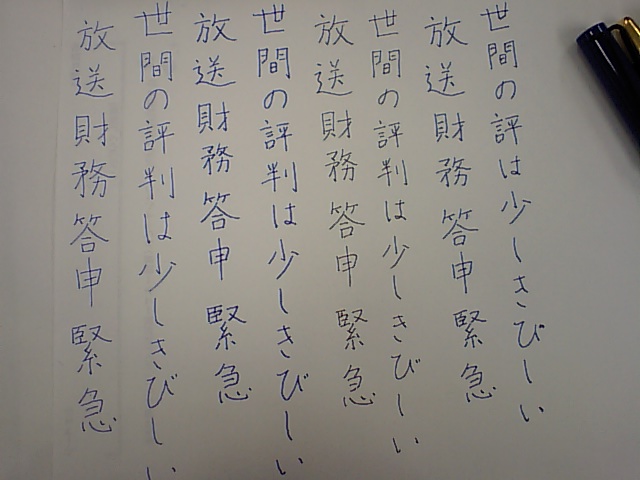 世間の評は少しきびしい
放送財務答申緊急
世間の評判は少しきびしい
放送財務答申緊急
世間の評判は少しきびしい
放送財務答申緊急
世間の評判は少しきびしい
放送財務答申緊急